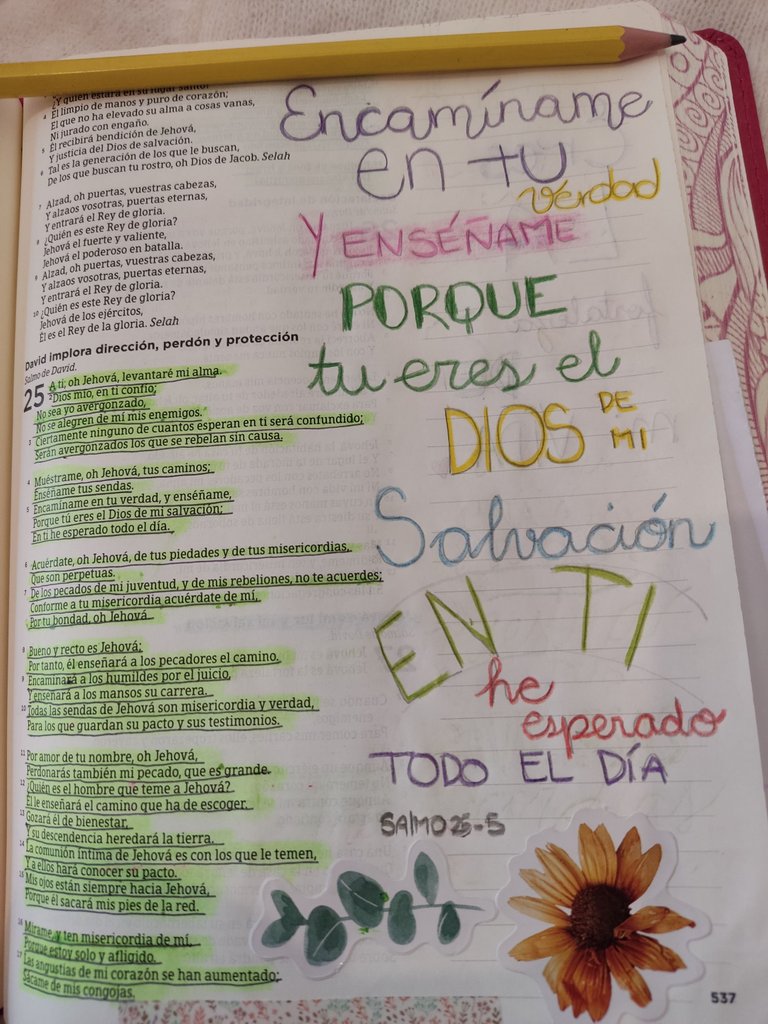 ¿Y quién estará en su lugar santo?
4 El limpio de manos y puro de corazón;
El que no ha elevado su alma a cosas vanas,
Ni jurado con engaño.
5 Él recibirá bendición de Jehová,
Y justicia del Dios de salvación.
6 Tal es la generación de los que le buscan,
De los que buscan tu rostro, oh Dios de Jacob. Selah
7 Alzad, oh puertas, vuestras cabezas,
Y alzaos vosotras, puertas eternas,
Y entrará el Rey de gloria.
8 ¿Quién es este Rey de gloria?
Jehová el fuerte y valiente,
Jehová el poderoso en batalla.
9 Alzad, oh puertas, vuestras cabezas,
Y alzaos vosotras, puertas eternas,
Y entrará el Rey de gloria.
10 ¿Quién es este Rey de gloria?
Jehová de los ejércitos,
Él es el Rey de la gloria. Selah
David implora dirección, perdón y protección
Salmo de David.
25 A ti, oh Jehová, levantaré mi alma.
2 Dios mío, en ti confío;
No sea yo avergonzado,
No se alegren de mí mis enemigos.
3 Ciertamente ninguno de cuantos esperan en ti será confundido;
Serán avergonzados los que se rebelan sin causa.
4 Muéstrame, oh Jehová, tus caminos;
Enséñame tus sendas.
5 Encamíname en tu verdad, y enséñame,
Porque tú eres el Dios de mi salvación;
En ti he esperado todo el día.
6 Acuérdate, oh Jehová, de tus piedades y de tus misericordias,
Que son perpetuas.
7 De los pecados de mi juventud, y de mis rebeliones, no te acuerdes;
Conforme a tu misericordia acuérdate de mí,
Por tu bondad, oh Jehová.
8 Bueno y recto es Jehová;
Por tanto, él enseñará a los pecadores el camino.
9 Encaminará a los humildes por el juicio,
Y enseñará a los mansos su carrera.
10 Todas las sendas de Jehová son misericordia y verdad,
Para los que guardan su pacto y sus testimonios.
11 Por amor de tu nombre, oh Jehová,
Perdonarás también mi pecado, que es grande.
12 ¿Quién es el hombre que teme a Jehová?
Él le enseñará el camino que ha de escoger.
13 Gozará él de bienestar,
Y su descendencia heredará la tierra.
14 La comunión íntima de Jehová es con los que le temen,
Y a ellos hará conocer su pacto.
15 Mis ojos están siempre hacia Jehová,
Porque él sacará mis pies de la red.
16 Mírame, y ten misericordia de mí,
Porque estoy solo y afligido.
17 Las angustias de mi corazón se han aumentado;
Sácame de mis congojas.
Encamíname
en tu
verdad
Y ENSÉÑAME
PORQUE
tu eres el
DIOS DE MI
Salvación
EN TI
he
esperado
TODO EL DÍA
SAlMO 25-5
537